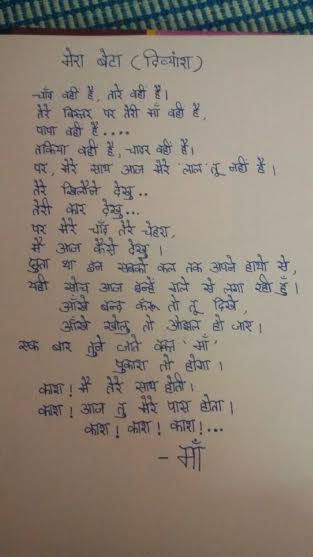 मेरा बेटा (दिव्यांश)
चाँद वही है, तारे वही है।
तेरे बिस्तर पर तेरी माँ वही है,
पापा वही है....
तकिया वही है, चादर वही है।
पर, मेरे साथ आज मेरे 'लाल' तू नहीं है।
तेरे खिलौने देखु..
तेरी कार देखु...
पर मेरे चाँद तेरे चेहरा,
मैं आज कैसे देखु।
छुता था इन सबको कल तक अपने हाथो से,
यही सोच आज इन्हें गले से लगा रही हुँ।
आँखे बन्द करू तो तू दिखे,
आँखे खोलु तो ओझल हो जाए।
एक बार तुने जाते वक्त 'माँ'
पुकारा तो होगा।
काश! मैं तेरे साथ होती।
काश! आज तु मेरे पास होता।
काश! काश! काश!...
- माँ